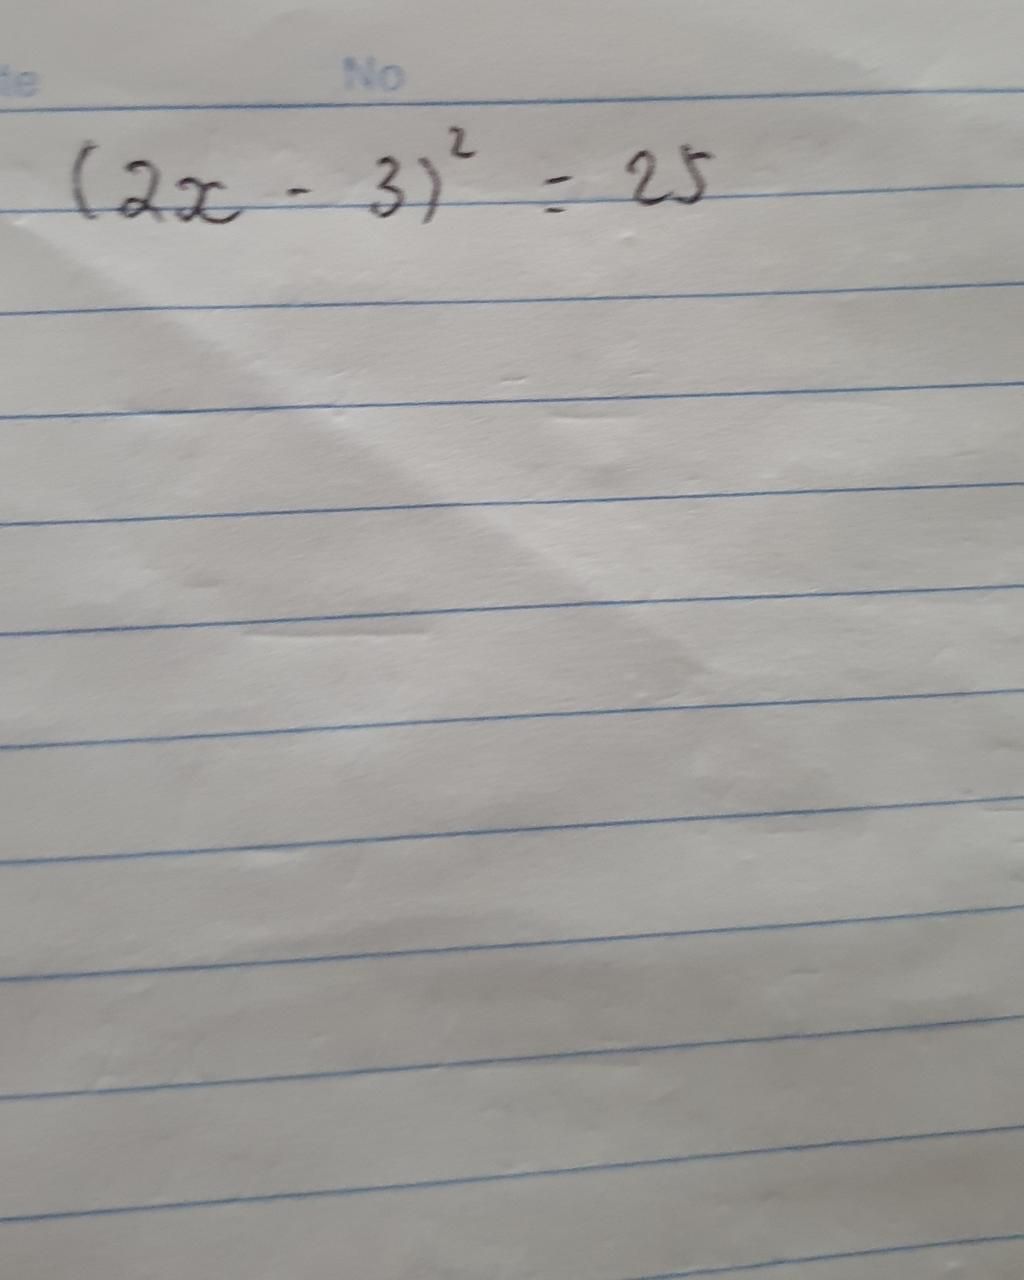 No
(2x - 3)² = 25